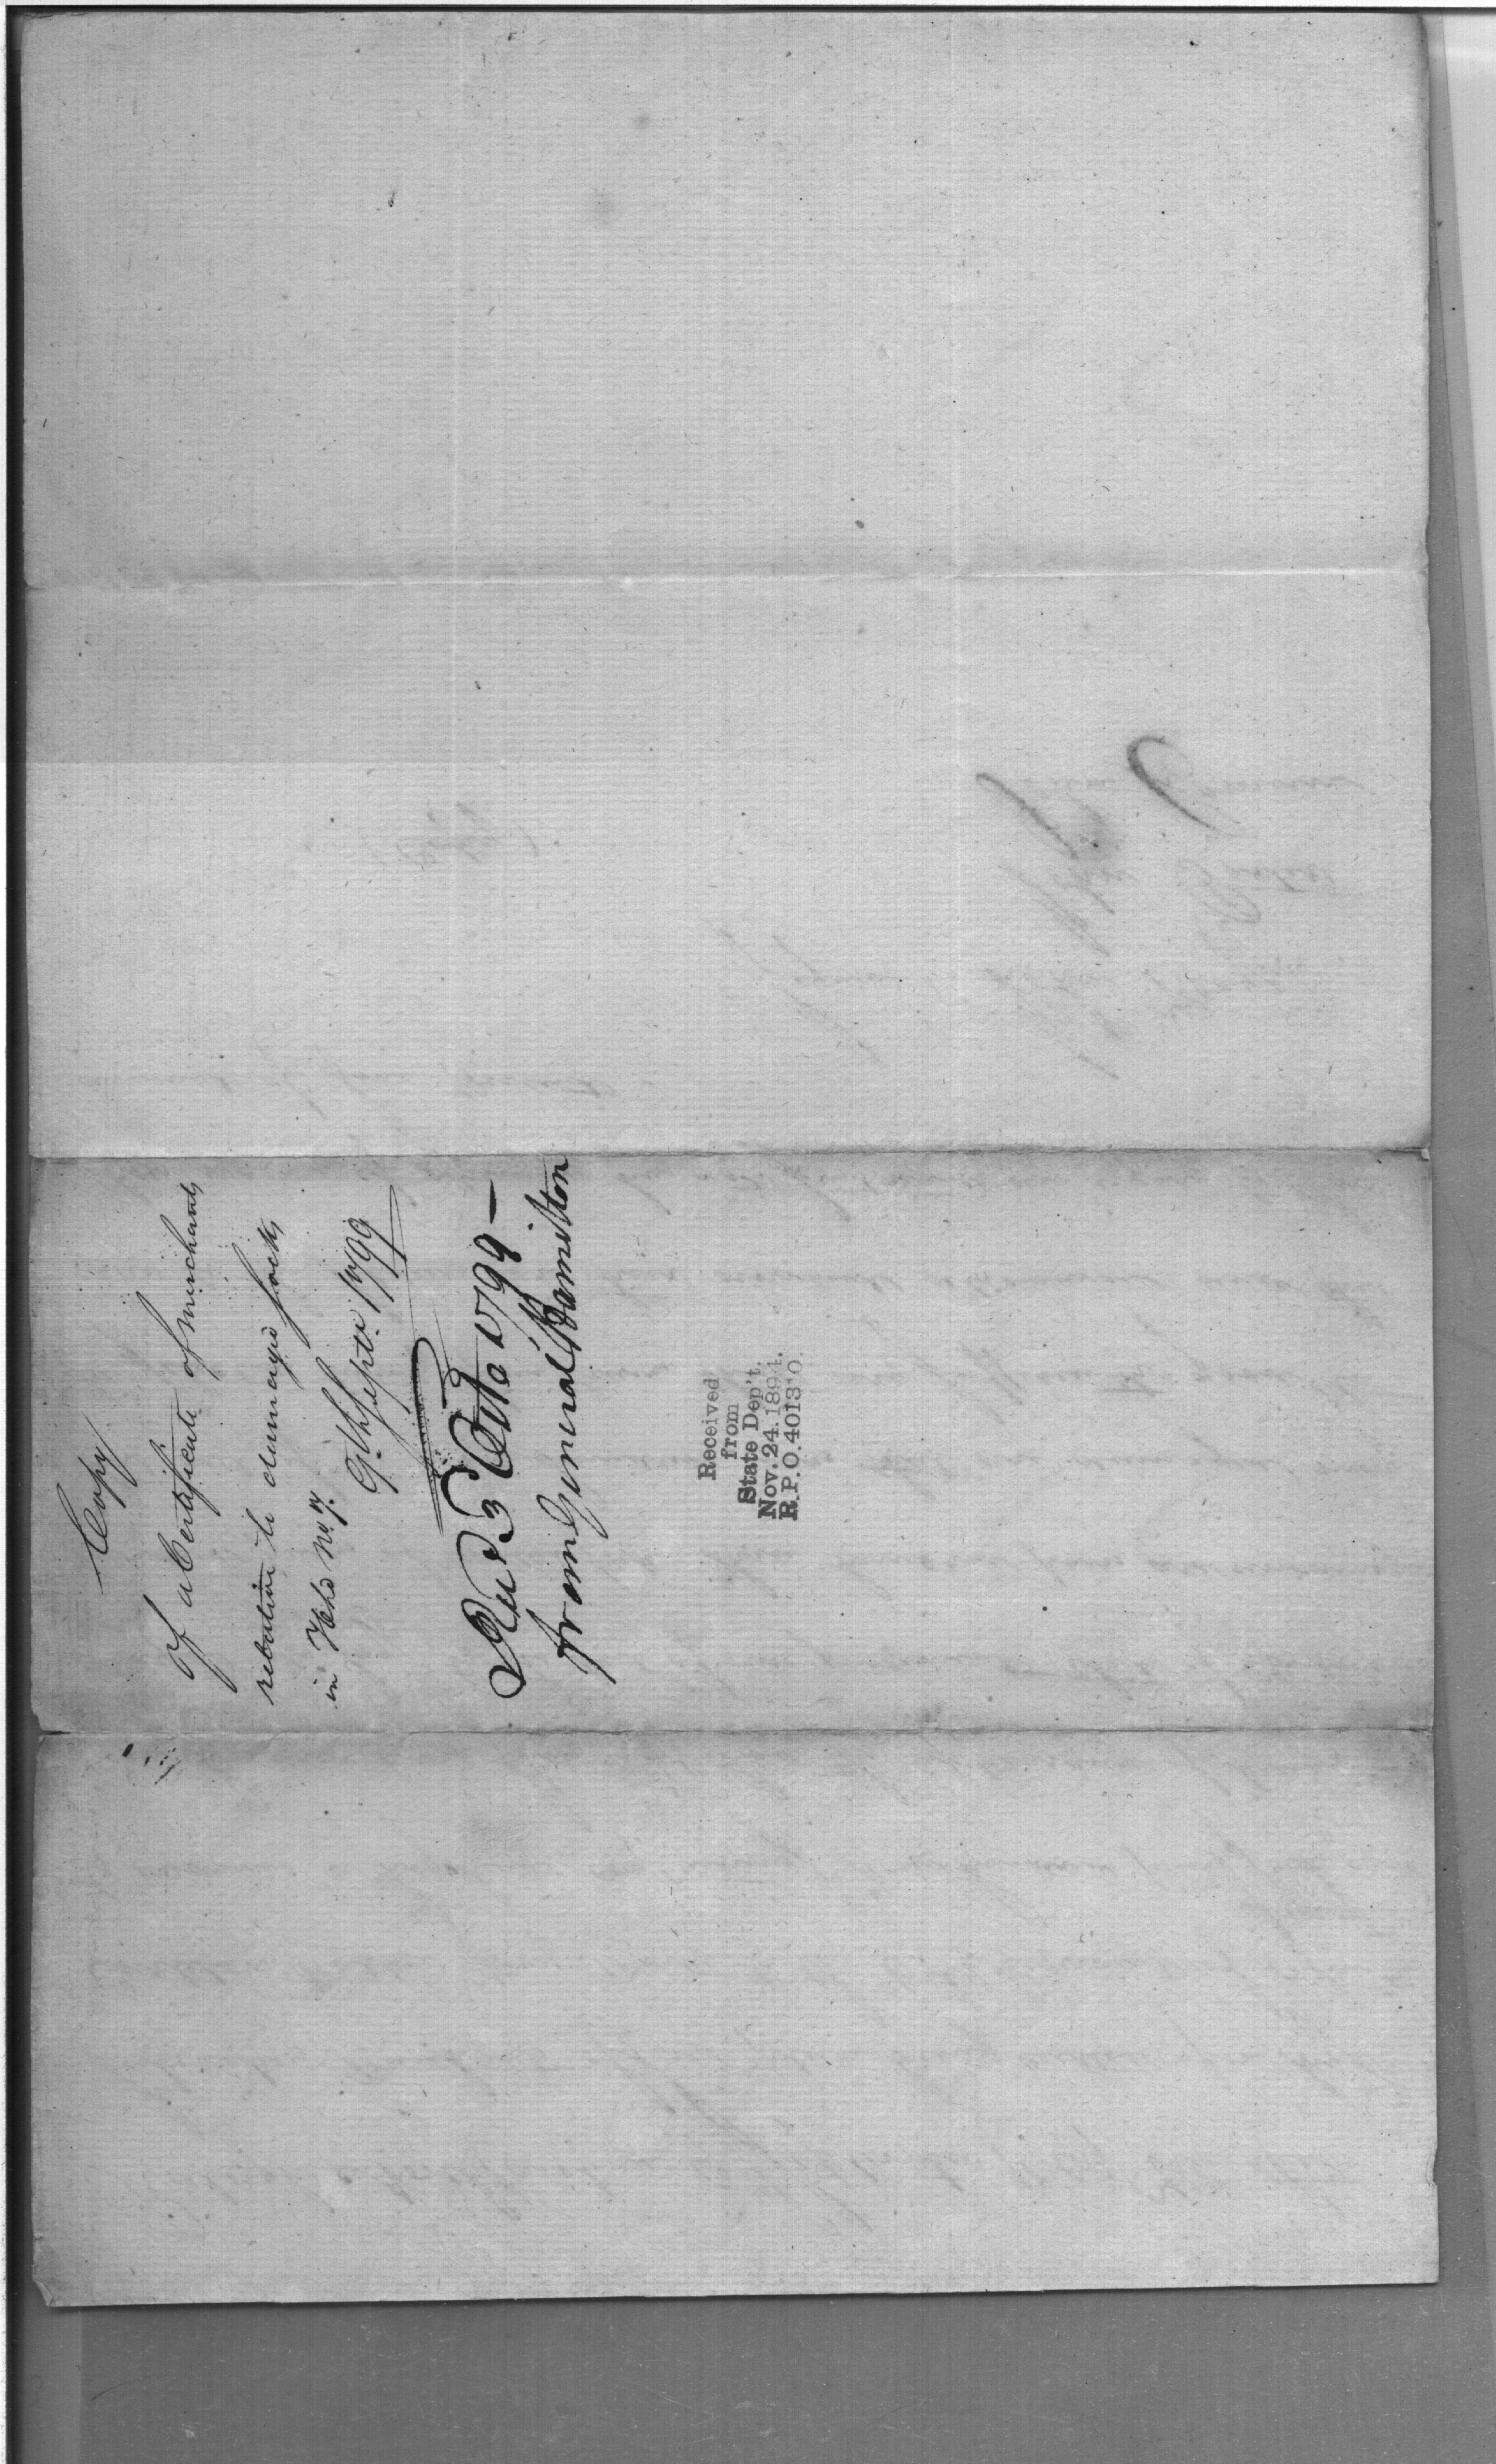 Copy
Of a Certificate of merchants
relative to damaged frocks
in Hhd No. 7.
9th Septr. 1799
Recd 3 Octo 1799 —
from General Hamilton
Received
from
State Dep't.
Nov. 24. 1894.
R.P.O. 401310.